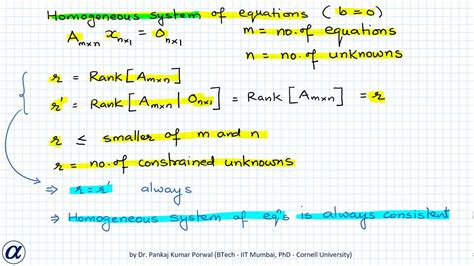 Homogeneous system of equations (b=0)
A_{m×n} x_{n×1} = O_{n×1} m = no. of equations
n = no. of unknowns
r = Rank[A_{m×n}]
r' = Rank[A_{m×n} | O_{n×1}] = Rank[A_{m×n}] = r
r ≤ smaller of m and n
r = no. of constrained unknowns
⇒ r = r' always
⇒ Homogeneous system of eqⁿs is always consistent
α by Dr. Pankaj Kumar Porwal (BTech - IIT Mumbai, PhD - Cornell University)